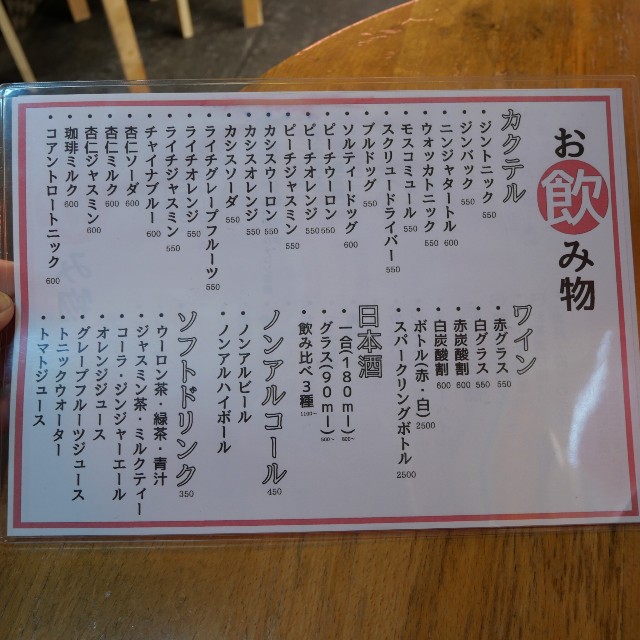 お飲み物
カクテル
・ジントニック 550
・ジンバック 550
・ニンジャタートル 600
・ウォッカトニック 550
・モスコミュール 550
・スクリュードライバー 550
・ブルドッグ 550
・ソルティードッグ 600
・ピーチウーロン 550
・ピーチオレンジ 550
・ピーチジャスミン 550
・カシスウーロン 550
・カシスオレンジ 550
・カシスソーダ 550
・ライチグレープフルーツ 550
・ライチオレンジ 550
・ライチジャスミン 550
・チャイナブルー 600
・杏仁ソーダ 600
・杏仁ミルク 600
・杏仁ジャスミン 600
・珈琲ミルク 600
・コアントロートニック 600
ワイン
・赤グラス 550
・白グラス 550
・赤炭酸割 600
・白炭酸割 600
・ボトル(赤・白) 2500
・スパークリングボトル 2500
日本酒
・一合(180ml) 800~
・グラス(90ml) 500~
・飲み比べ3種 1100~
ノンアルコール 450
・ノンアルビール
・ノンアルハイボール
ソフトドリンク 350
・ウーロン茶・緑茶・青汁
・ジャスミン茶・ミルクティー
・コーラ・ジンジャーエール
・オレンジジュース
・グレープフルーツジュース
・トニックウォーター
・トマトジュース